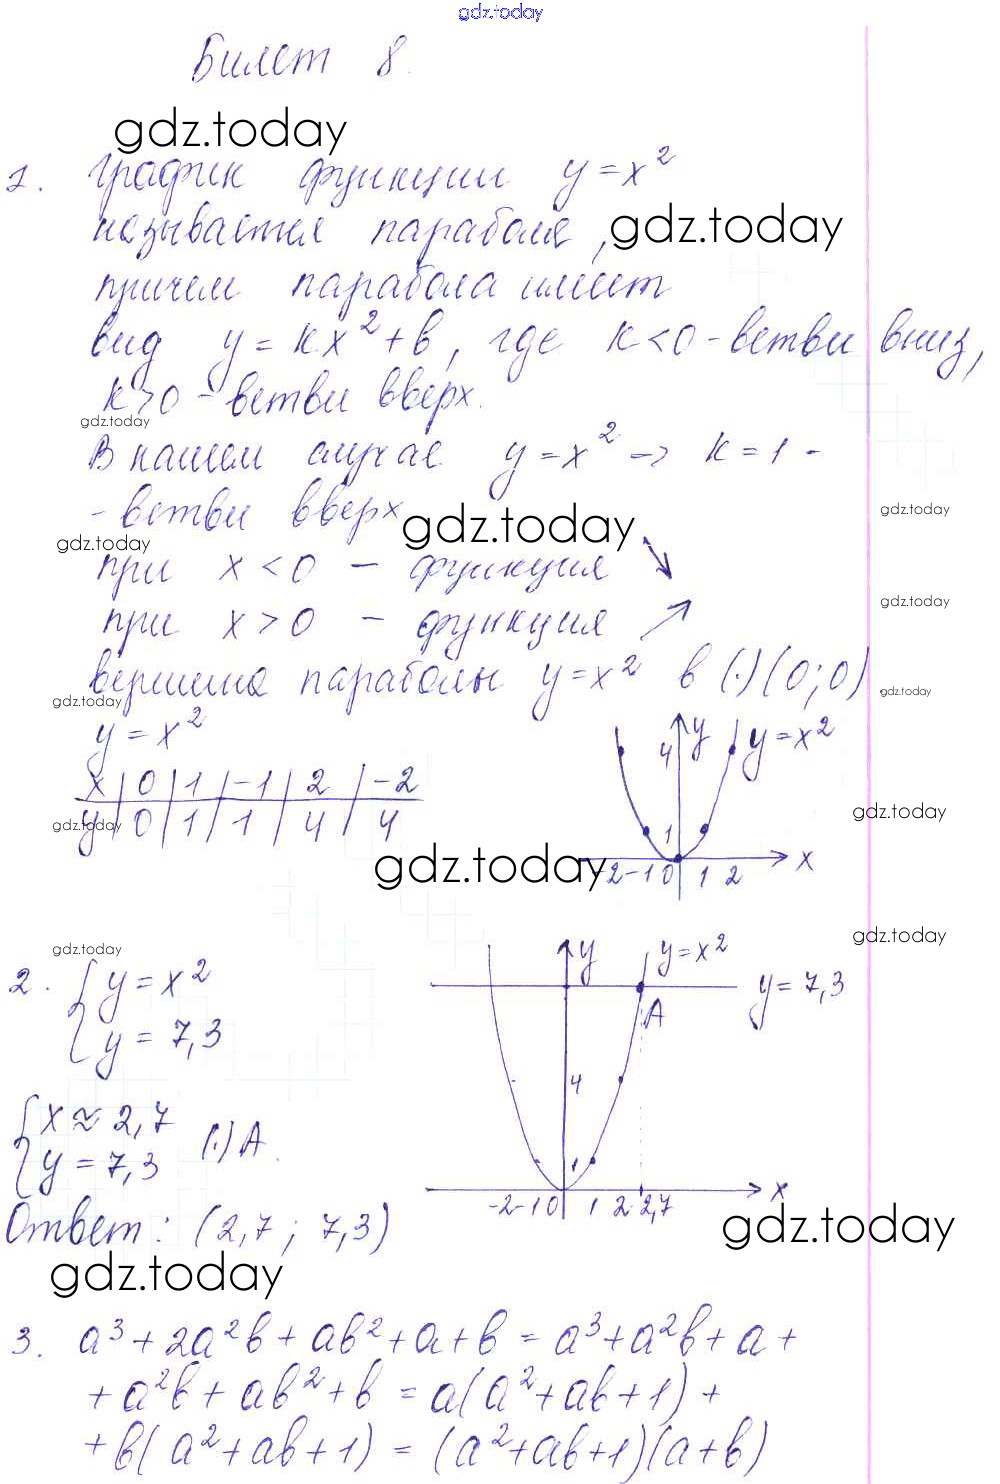 gdz.today
Билет 8.
gdz.today
1. График функции y = x²
называется парабола,
gdz.today
причем парабола имеет
вид y = kx² + b, где k < 0 - ветви вниз,
k > 0 - ветви вверх.
gdz.today
В нашем случае y = x² → k = 1 -
- ветви вверх
gdz.today
gdz.today
gdz.today
при x < 0 - функция ↘
gdz.today
при x > 0 - функция ↗
вершина параболы y = x² в (·) (0; 0)
gdz.today
gdz.today
y = x²
x | 0 | 1 | -1 | 2 | -2
y | 0 | 1 | 1 | 4 | 4
gdz.today
4 y y = x²
1
-2 -1 0 1 2 x
gdz.today
gdz.today
gdz.today
gdz.today
2. { y = x²
y = 7,3
y y = x²
y = 7,3
A
4
1
-2 -1 0 1 2 2,7 x
{ x ≈ 2,7
y = 7,3 (·) A.
Ответ: (2,7; 7,3)
gdz.today
gdz.today
3. a³ + 2a²b + ab² + a + b = a³ + a²b + a +
+ a²b + ab² + b = a(a² + ab + 1) +
+ b(a² + ab + 1) = (a² + ab + 1)(a + b)